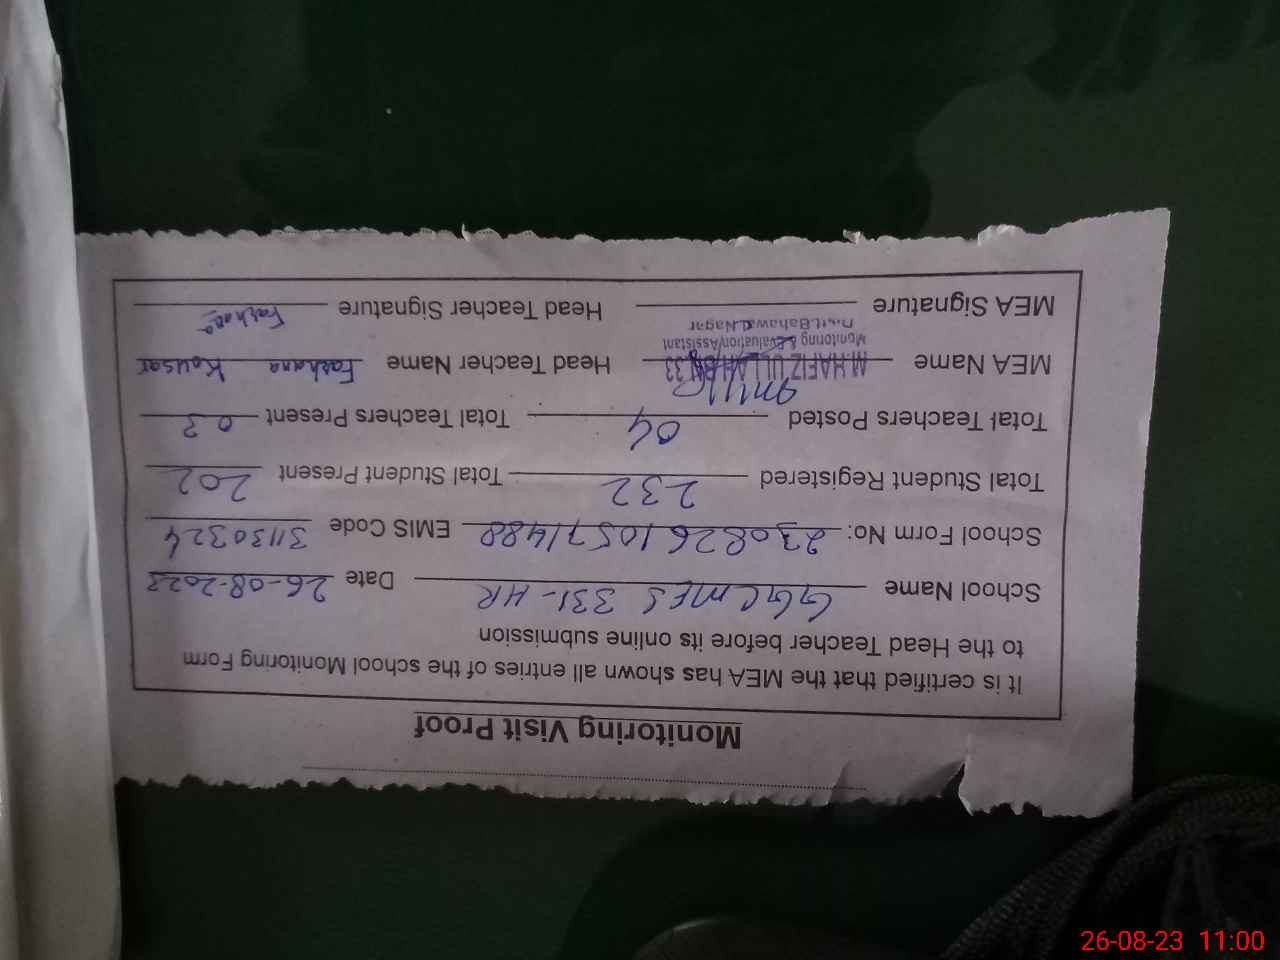 Monitoring Visit Proof
It is certified that the MEA has shown all entries of the school Monitoring Form
to the Head Teacher before its online submission
School Name GGCMES 331-HR Date 26-08-2023
School Form No: 23082610571488 EMIS Code 31130324
Total Student Registered 232 Total Student Present 202
Total Teachers Posted 04 Total Teachers Present 03
MEA Name M.HAFIZ ULLAH Head Teacher Name Farhana Kousar
Monitoring & Evaluation Assistant
Distt. Bahawal Nagar
MEA Signature Head Teacher Signature Farhana
26-08-23 11:00